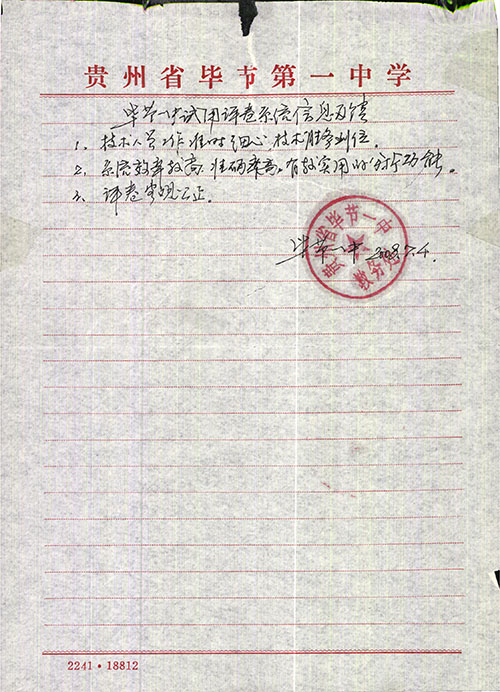 贵州省毕节第一中学
毕节一中试用评卷系统信息反馈
1、技术人员工作准时细心，技术服务到位。
2、系统效率较高，准确率高，有较实用的分析功能。
3、评卷客观公正。
贵州省毕节一中
教务处
毕节一中 2008.7.4.
2241·18812